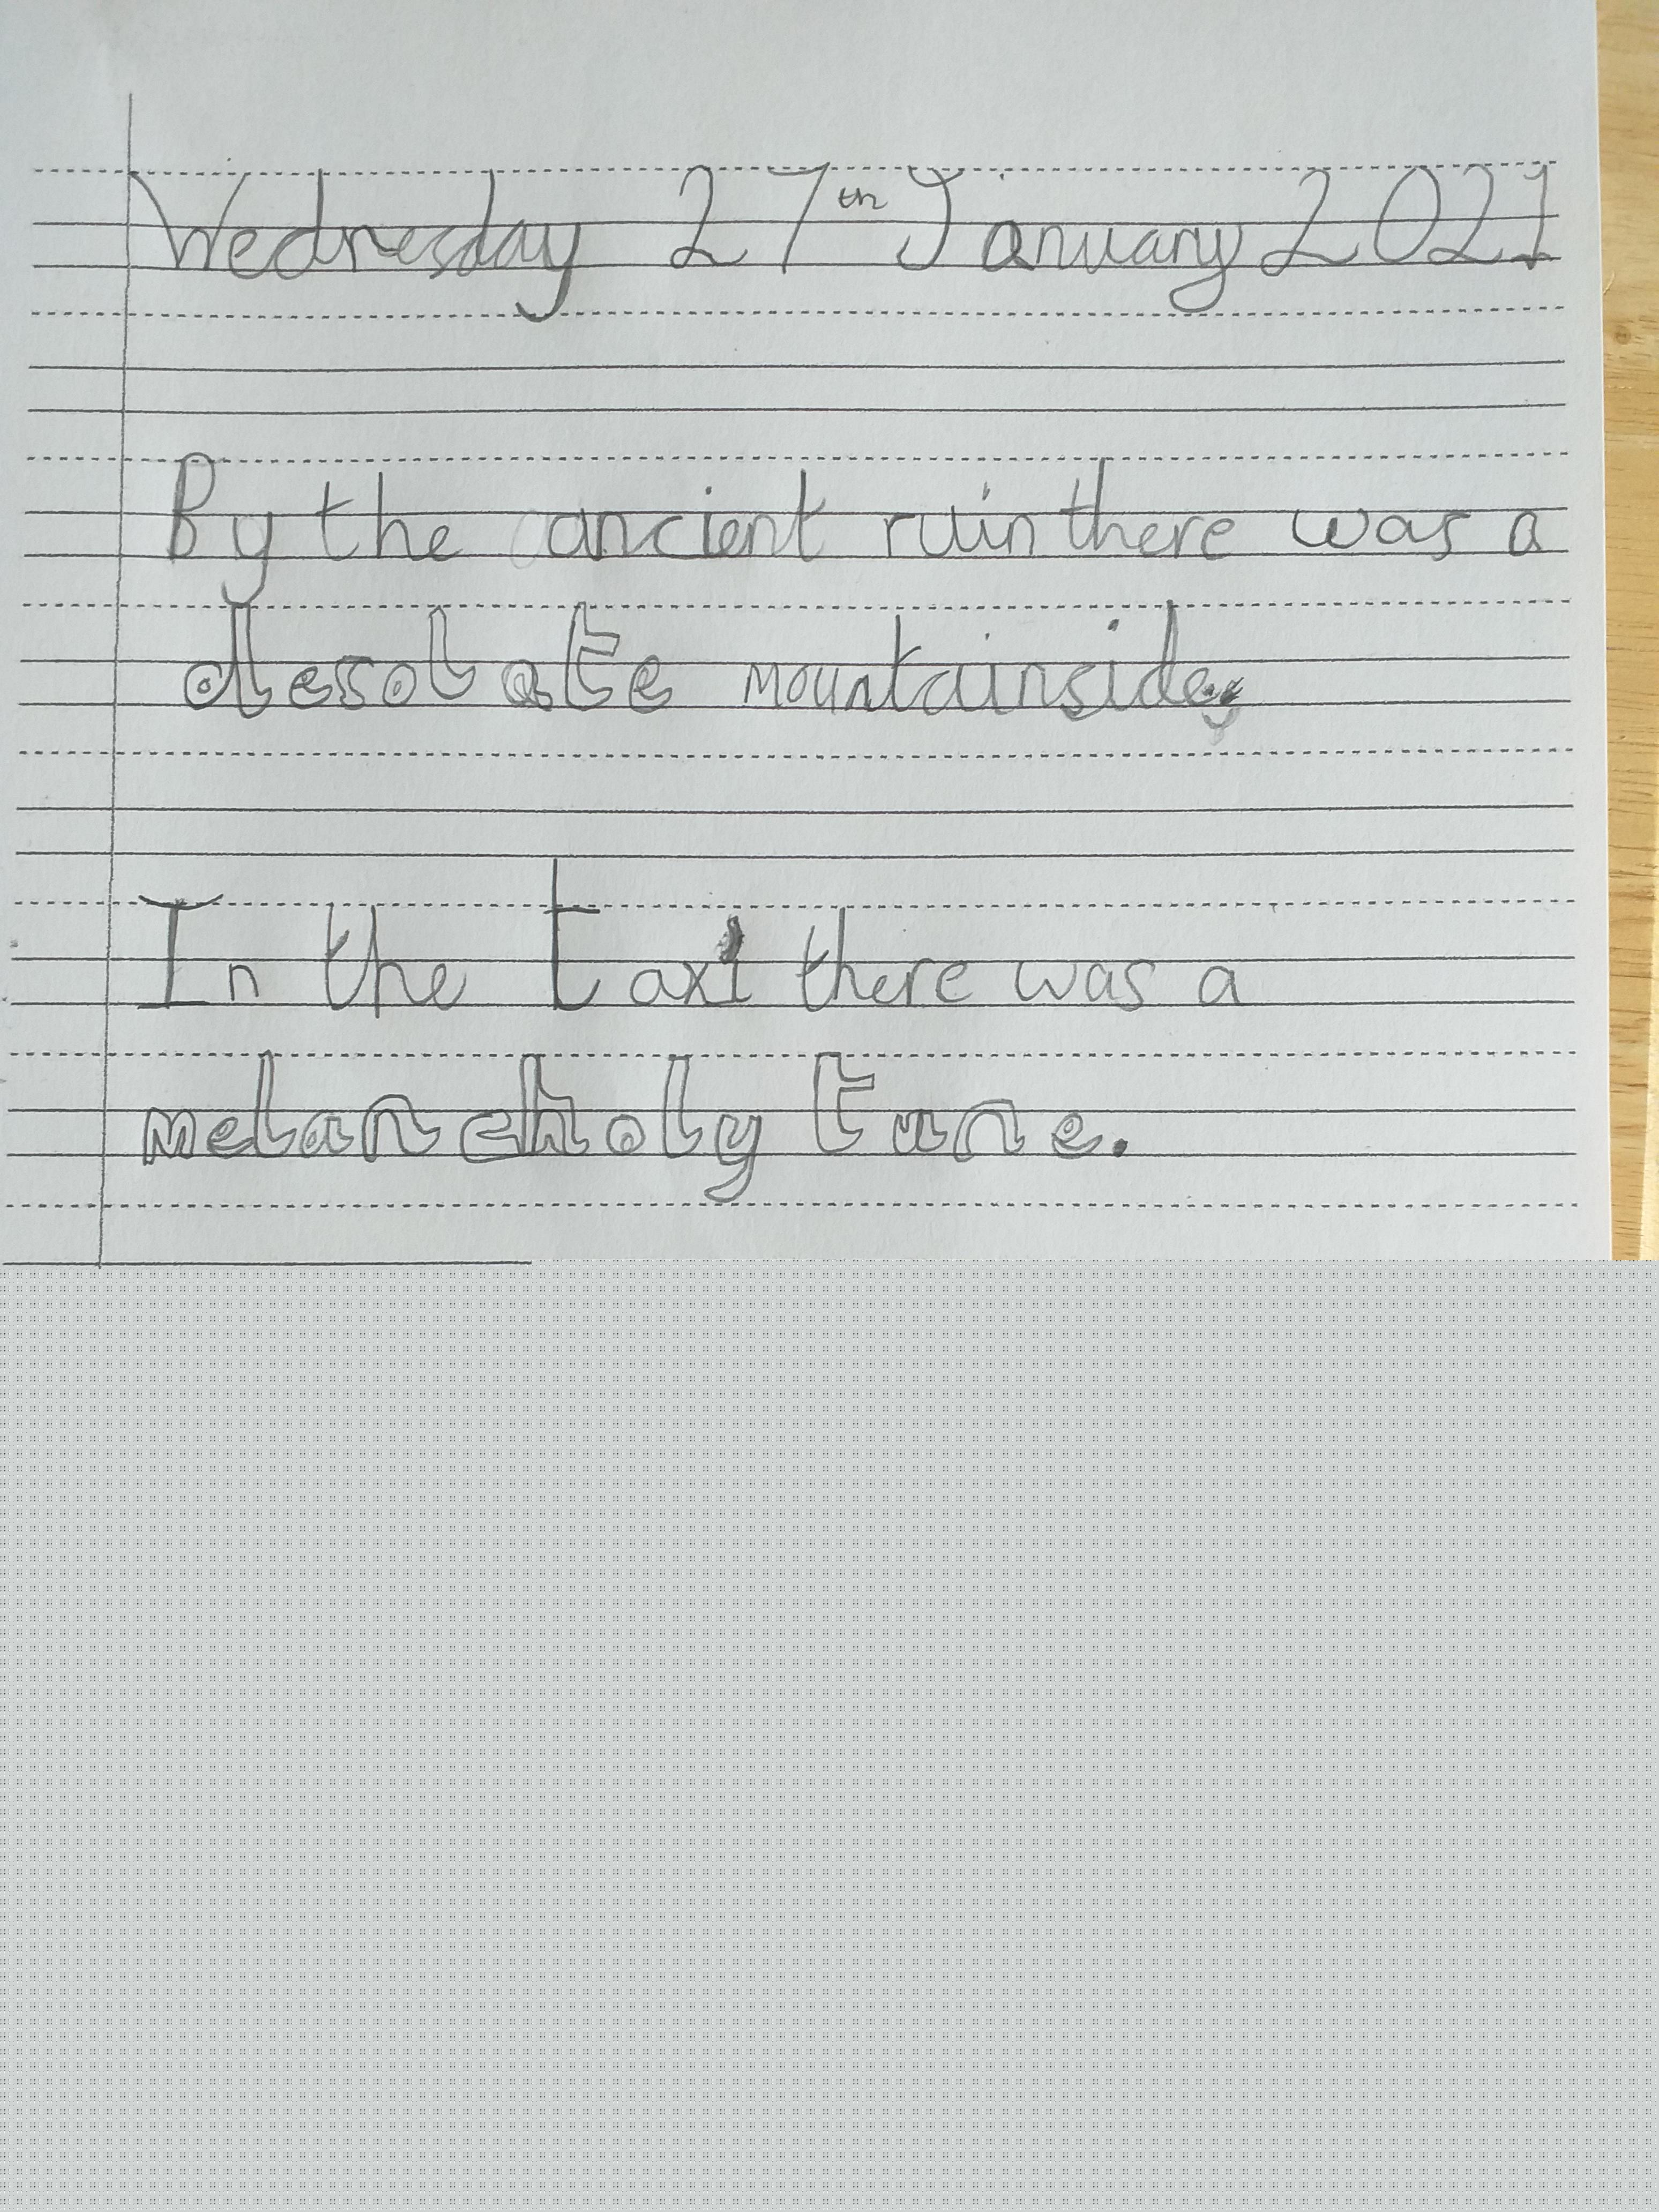 Wednesday 27th January 2021
By the ancient ruin there was a
desolate mountainside.
In the taxi there was a
melancholy tune.